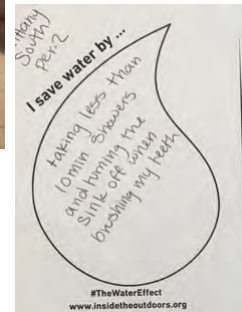 South
Per. 2
I save water by ...
taking less than
10min showers
and turning the
sink off when
brushing my teeth
#TheWaterEffect
www.insidetheoutdoors.org